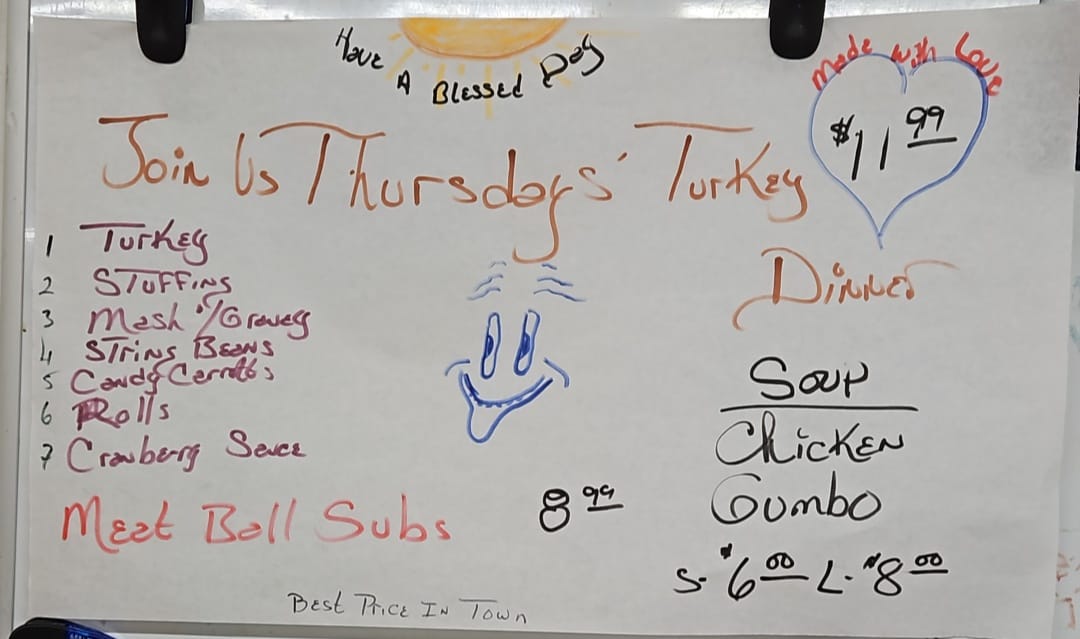 Have A Blessed Day
Made with Love
$11 99
Join Us Thursdays' Turkey
Dinner
1 Turkey
2 Stuffins
3 Mash w/Gravey
4 Strins Beans
5 Candy Carrots
6 Rolls
7 Cranberry Sauce
Soup
Chicken
Gumbo
S- $6 00 L- $8 00
Meat Ball Subs 8 99
Best Price In Town